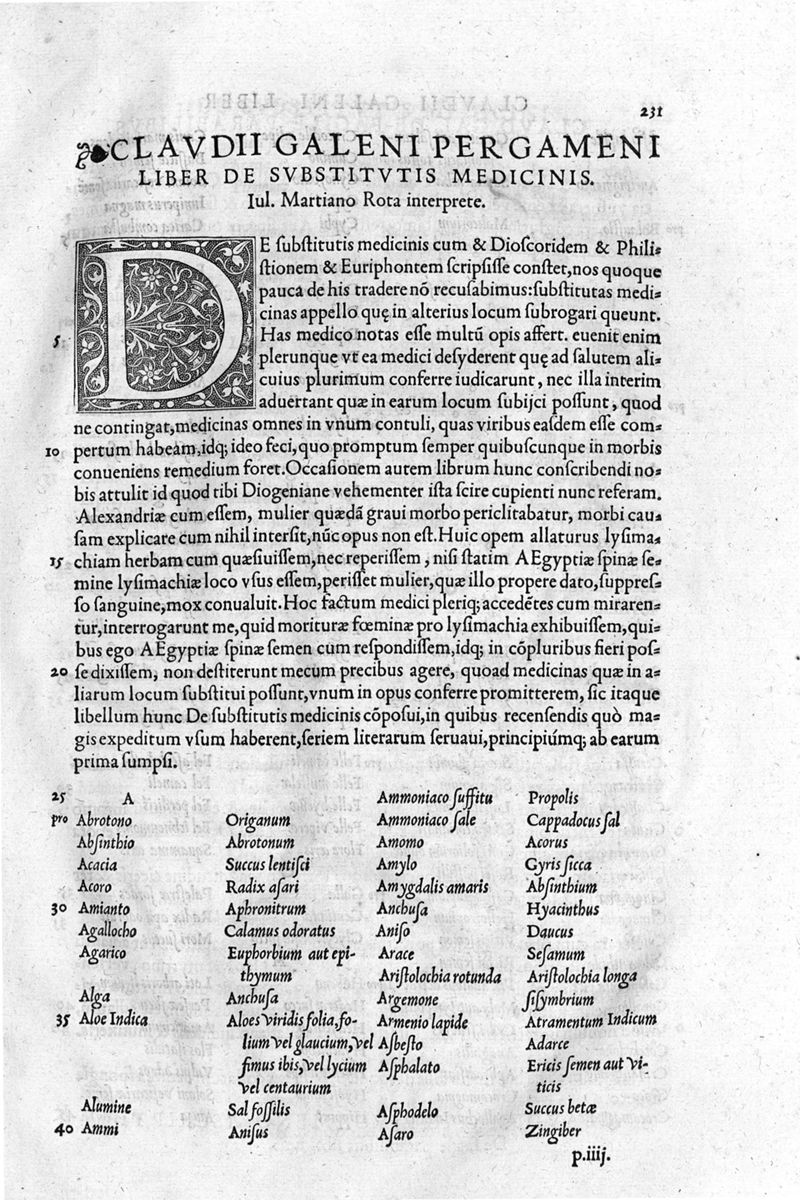 231
CLAVDII GALENI PERGAMENI
LIBER DE SVBSTITVTIS MEDICINIS.
Iul. Martiano Rota interprete.
DE ſubſtitutis medicinis cum & Dioſcoridem & Phili-
ſtionem & Euriphontem ſcripſiſſe conſtet, nos quoque
pauca de his tradere nō recuſabimus: ſubſtitutas medi-
cinas appello quę in alterius locum ſubrogari queunt.
5 Has medico notas eſſe multū opis affert. euenit enim
plerunque vt ea medici deſyderent quę ad ſalutem ali-
cuius plurimum conferre iudicarunt, nec illa interim
aduertant quæ in earum locum ſubijci poſſunt, quod
ne contingat, medicinas omnes in vnum contuli, quas viribus eaſdem eſſe com-
10 pertum habeam, idq; ideo feci, quo promptum ſemper quibuſcunque in morbis
conueniens remedium foret. Occaſionem autem librum hunc conſcribendi no-
bis attulit id quod tibi Diogeniane vehementer iſta ſcire cupienti nunc referam.
Alexandriæ cum eſſem, mulier quædā graui morbo periclitabatur, morbi cau-
ſam explicare cum nihil interſit, nūc opus non eſt. Huic opem allaturus lyſima-
15 chiam herbam cum quæſiuiſſem, nec reperiſſem, niſi ſtatim AEgyptiæ ſpinæ ſe-
mine lyſimachiæ loco vſus eſſem, periſſet mulier, quæ illo propere dato, ſuppreſ-
ſo ſanguine, mox conualuit. Hoc factum medici pleriq; accedētes cum miraren-
tur, interrogarunt me, quid morituræ fœminæ pro lyſimachia exhibuiſſem, qui-
bus ego AEgyptiæ ſpinæ ſemen cum reſpondiſſem, idq; in cōpluribus fieri poſ-
20 ſe dixiſſem, non deſtiterunt mecum precibus agere, quoad medicinas quæ in a-
liarum locum ſubſtitui poſſunt, vnum in opus conferre promitterem, ſic itaque
libellum hunc De ſubſtitutis medicinis cōpoſui, in quibus recenſendis quò ma-
gis expeditum vſum haberent, ſeriem literarum ſeruaui, principiúmq; ab earum
prima ſumpſi.
25 A
pro Abrotono Origanum
Abſinthio Abrotonum
Acacia Succus lentiſci
Acoro Radix aſari
30 Amianto Aphronitrum
Agallocho Calamus odoratus
Agarico Euphorbium aut epi-
thymum
Alga Anchuſa
35 Aloe Indica Aloes viridis folia, fo-
lium vel glaucium, vel
fimus ibis, vel lycium
vel centaurium
Alumine Sal foſſilis
40 Ammi Aniſus
Ammoniaco ſuffitu Propolis
Ammoniaco ſale Cappadocus ſal
Amomo Acorus
Amylo Gyris ſicca
Amygdalis amaris Abſinthium
Anchuſa Hyacinthus
Aniſo Daucus
Arace Seſamum
Ariſtolochia rotunda Ariſtolochia longa
Argemone ſiſymbrium
Armenio lapide Atramentum Indicum
Aſbeſto Adarce
Aſphalato Ericis ſemen aut vi-
ticis
Aſphodelo Succus betæ
Aſaro Zingiber
p.iiij.